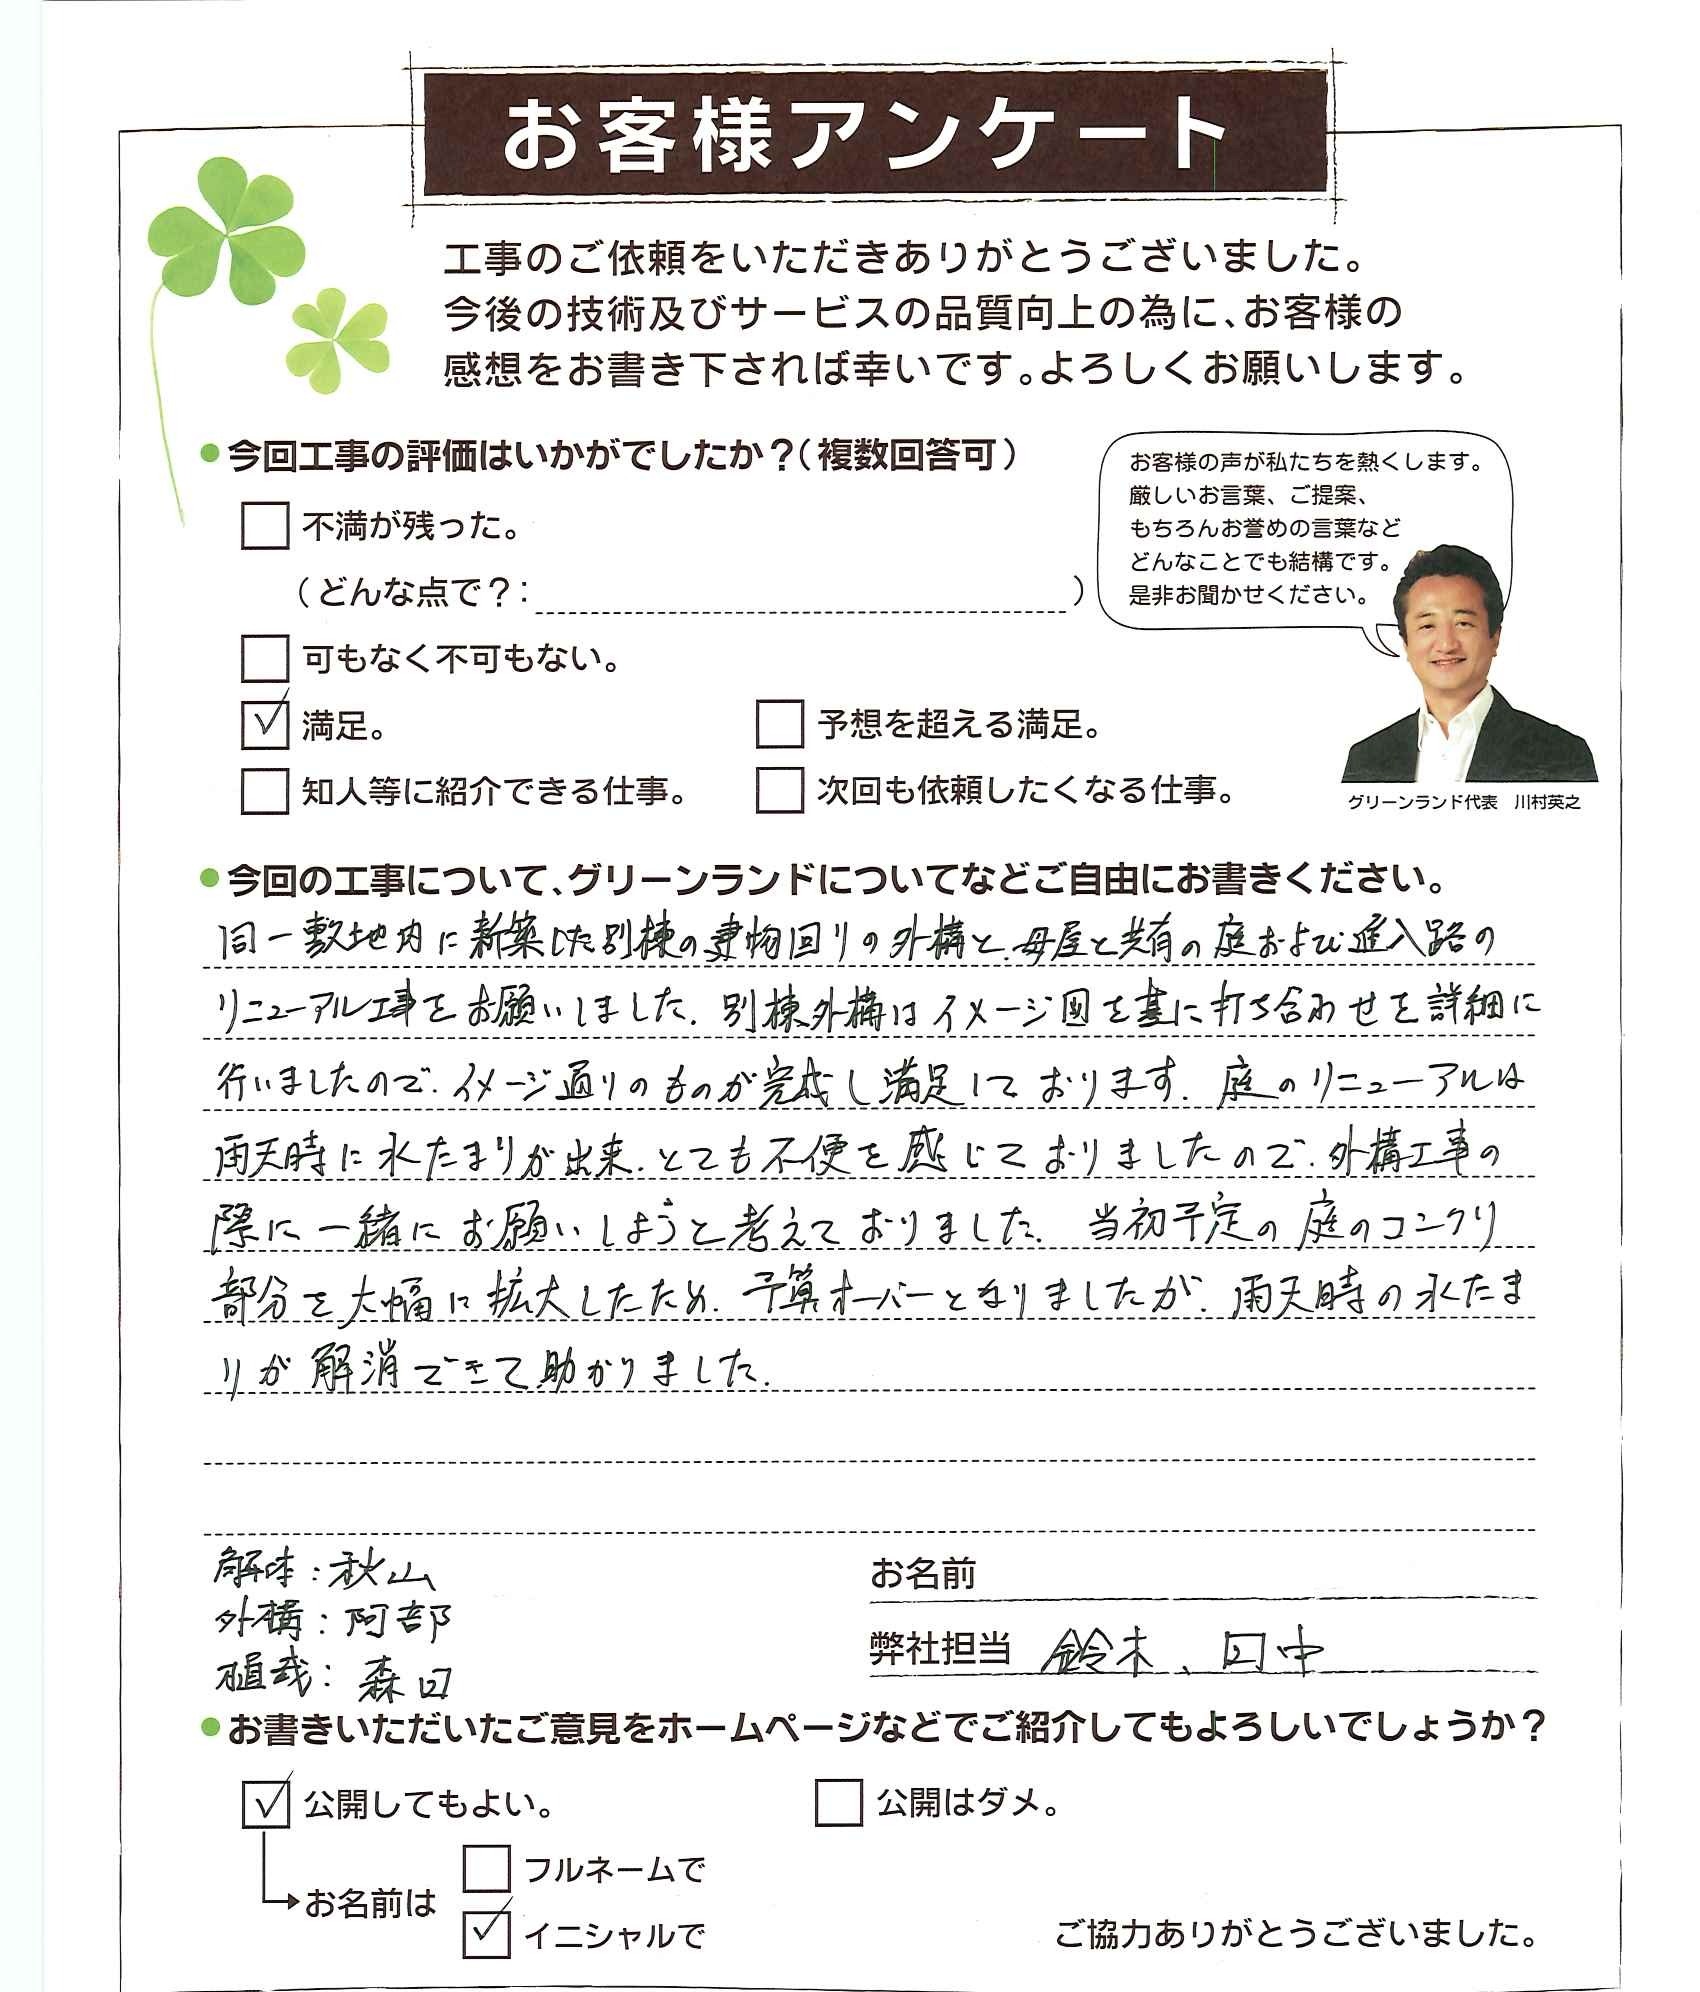 お客様アンケート
工事のご依頼をいただきありがとうございました。
今後の技術及びサービスの品質向上の為に、お客様の
感想をお書き下されば幸いです。よろしくお願いします。
●今回工事の評価はいかがでしたか？（複数回答可）
お客様の声が私たちを熱くします。
厳しいお言葉、ご提案、
もちろんお誉めの言葉など
どんなことでも結構です。
是非お聞かせください。
グリーンランド代表　川村英之
不満が残った。
（どんな点で？：　）
可もなく不可もない。
満足。　予想を超える満足。
知人等に紹介できる仕事。　次回も依頼したくなる仕事。
●今回の工事について、グリーンランドについてなどご自由にお書きください。
同一敷地内に新築した別棟の建物回りの外構と、母屋と共有の庭および進入路の
リニューアル工事をお願いしました。別棟外構はイメージ図を基に打ち合わせを詳細に
行いましたので、イメージ通りのものが完成し満足しております。庭のリニューアルは
雨天時に水たまりが出来、とても不便を感じておりましたので、外構工事の
際に一緒にお願いしようと考えておりました。当初予定の庭のコンクリ
部分を大幅に拡大したため、予算オーバーとなりましたが、雨天時の水たま
りが解消できて助かりました。
解体：秋山
外構：阿部
植栽：森田
お名前
弊社担当　鈴木、田中
●お書きいただいたご意見をホームページなどでご紹介してもよろしいでしょうか？
公開してもよい。　公開はダメ。
お名前は
フルネームで
イニシャルで
ご協力ありがとうございました。